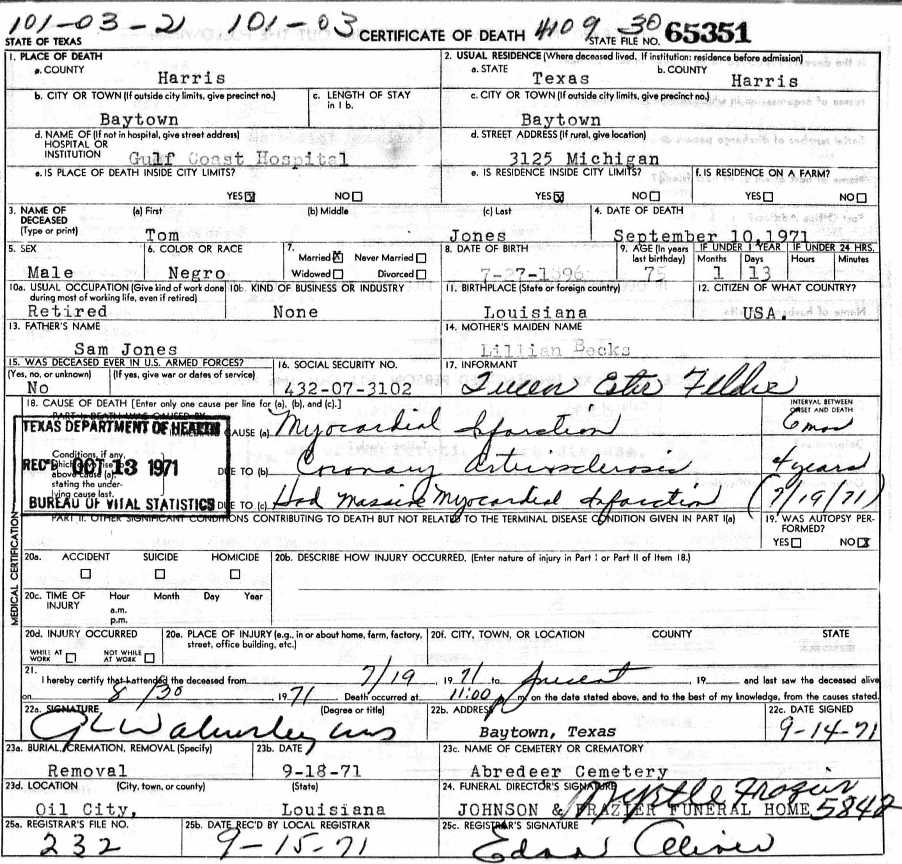 101-03-21 101-03 CERTIFICATE OF DEATH 4109 30
STATE OF TEXAS STATE FILE NO. 65351
1. PLACE OF DEATH 2. USUAL RESIDENCE (Where deceased lived. If institution: residence before admission)
a. COUNTY a. STATE b. COUNTY
Harris Texas Harris
b. CITY OR TOWN (If outside city limits, give precinct no.) c. LENGTH OF STAY in 1 b. c. CITY OR TOWN (If outside city limits, give precinct no.)
Baytown Baytown
d. NAME OF (If not in hospital, give street address) d. STREET ADDRESS (If rural, give location)
HOSPITAL OR
INSTITUTION Gulf Coast Hospital 3125 Michigan
e. IS PLACE OF DEATH INSIDE CITY LIMITS? e. IS RESIDENCE INSIDE CITY LIMITS? f. IS RESIDENCE ON A FARM?
YES☒ NO☐ YES☒ NO☐ YES☐ NO☐
3. NAME OF DECEASED (Type or print) (a) First (b) Middle (c) Last 4. DATE OF DEATH
Tom Jones September 10, 1971
5. SEX 6. COLOR OR RACE 7. 8. DATE OF BIRTH 9. AGE (In years last birthday) IF UNDER 1 YEAR IF UNDER 24 HRS.
Married☒ Never Married☐ Months Days Hours Minutes
Male Negro Widowed☐ Divorced☐ 7-27-1896 75 1 13
10a. USUAL OCCUPATION (Give kind of work done during most of working life, even if retired) 10b. KIND OF BUSINESS OR INDUSTRY 11. BIRTHPLACE (State or foreign country) 12. CITIZEN OF WHAT COUNTRY?
Retired None Louisiana USA.
13. FATHER'S NAME 14. MOTHER'S MAIDEN NAME
Sam Jones Lillian Becks
15. WAS DECEASED EVER IN U.S. ARMED FORCES? 16. SOCIAL SECURITY NO. 17. INFORMANT
(Yes, no, or unknown) (If yes, give war or dates of service)
No 432-07-3102
18. CAUSE OF DEATH [Enter only one cause per line for (a), (b), and (c).] INTERVAL BETWEEN ONSET AND DEATH
PART I. DEATH WAS CAUSED BY
TEXAS DEPARTMENT OF HEALTH
IMMEDIATE CAUSE (a) Myocardial Infarction 6 mos
Conditions, if any, which gave rise to above cause (a), stating the under-lying cause last.
REC'D OCT 13 1971
DUE TO (b) Coronary Arteriosclerosis 4 years
BUREAU OF VITAL STATISTICS
DUE TO (c) Had Massive Myocardial Infarction (7/19/71)
PART II. OTHER SIGNIFICANT CONDITIONS CONTRIBUTING TO DEATH BUT NOT RELATED TO THE TERMINAL DISEASE CONDITION GIVEN IN PART I(a) 19. WAS AUTOPSY PERFORMED?
YES☐ NO☒
MEDICAL CERTIFICATION
20a. ACCIDENT SUICIDE HOMICIDE 20b. DESCRIBE HOW INJURY OCCURRED. (Enter nature of injury in Part I or Part II of Item 18.)
☐ ☐ ☐
20c. TIME OF INJURY Hour Month Day Year
a.m.
p.m.
20d. INJURY OCCURRED 20e. PLACE OF INJURY (e.g., in or about home, farm, factory, street, office building, etc.) 20f. CITY, TOWN, OR LOCATION COUNTY STATE
WHILE AT WORK ☐ NOT WHILE AT WORK ☐
21. I hereby certify that I attended the deceased from 7/19 1971 to present 19 and last saw the deceased alive
on 8/30 1971 Death occurred at 11:00 p m on the date stated above, and to the best of my knowledge, from the causes stated.
22a. SIGNATURE (Degree or title) 22b. ADDRESS 22c. DATE SIGNED
Baytown, Texas 9-14-71
23a. BURIAL, CREMATION, REMOVAL (Specify) 23b. DATE 23c. NAME OF CEMETERY OR CREMATORY
Removal 9-18-71 Abredeer Cemetery
23d. LOCATION (City, town, or county) (State) 24. FUNERAL DIRECTOR'S SIGNATURE
Myrtle Frazier
Oil City, Louisiana JOHNSON & FRAZIER FUNERAL HOME 5842
25a. REGISTRAR'S FILE NO. 25b. DATE REC'D BY LOCAL REGISTRAR 25c. REGISTRAR'S SIGNATURE
232 9-15-71 Edna Oliver